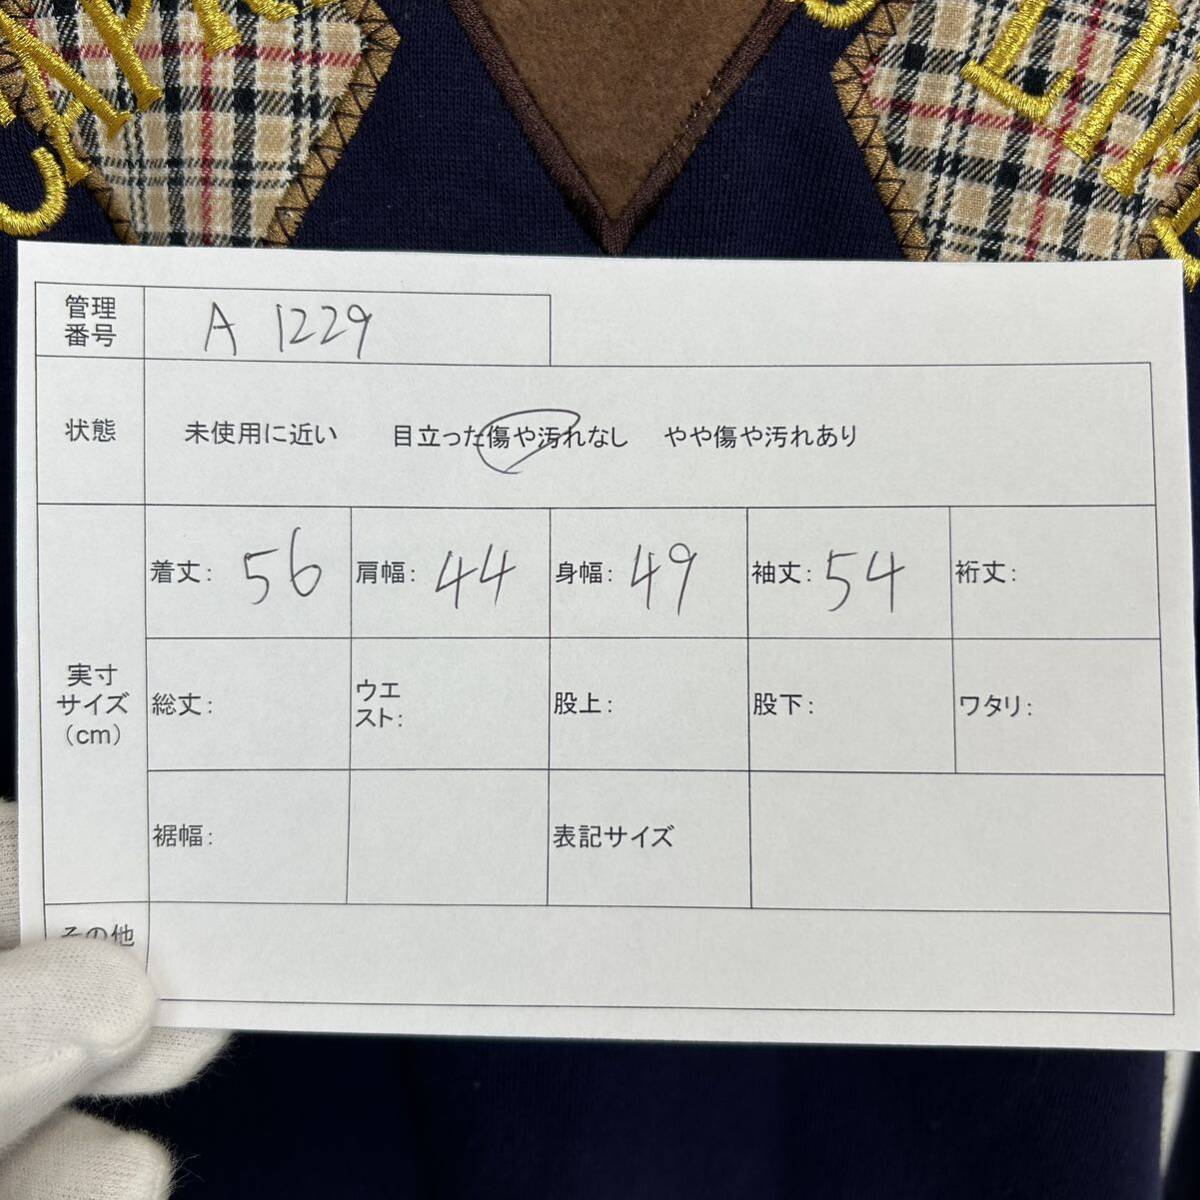 管理
番号
A 1229
状態
未使用に近い 目立った傷や汚れなし やや傷や汚れあり
実寸
サイズ
(cm)
着丈: 56
肩幅: 44
身幅: 49
袖丈: 54
裄丈:
総丈:
ウエ
スト:
股上:
股下:
ワタリ:
裾幅:
表記サイズ
その他